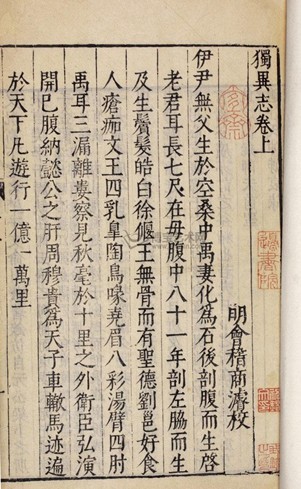 獨異志卷上
明會稽商濬校
伊尹無父生於空桑中禹妻化為石後剖腹而生啓
老君耳長七尺在母腹中八十一年剖左脇而生
及生鬚髮皓白徐偃王無骨而有聖德劉邕好食
人瘡痂文王四乳皐陶鳥喙堯眉八彩湯臂四肘
禹耳三漏離婁察見秋毫於十里之外衛臣弘演
開巳腹納懿公之肝周穆貴爲天子車轍馬迹遍
於天下凡遊行一億一萬里